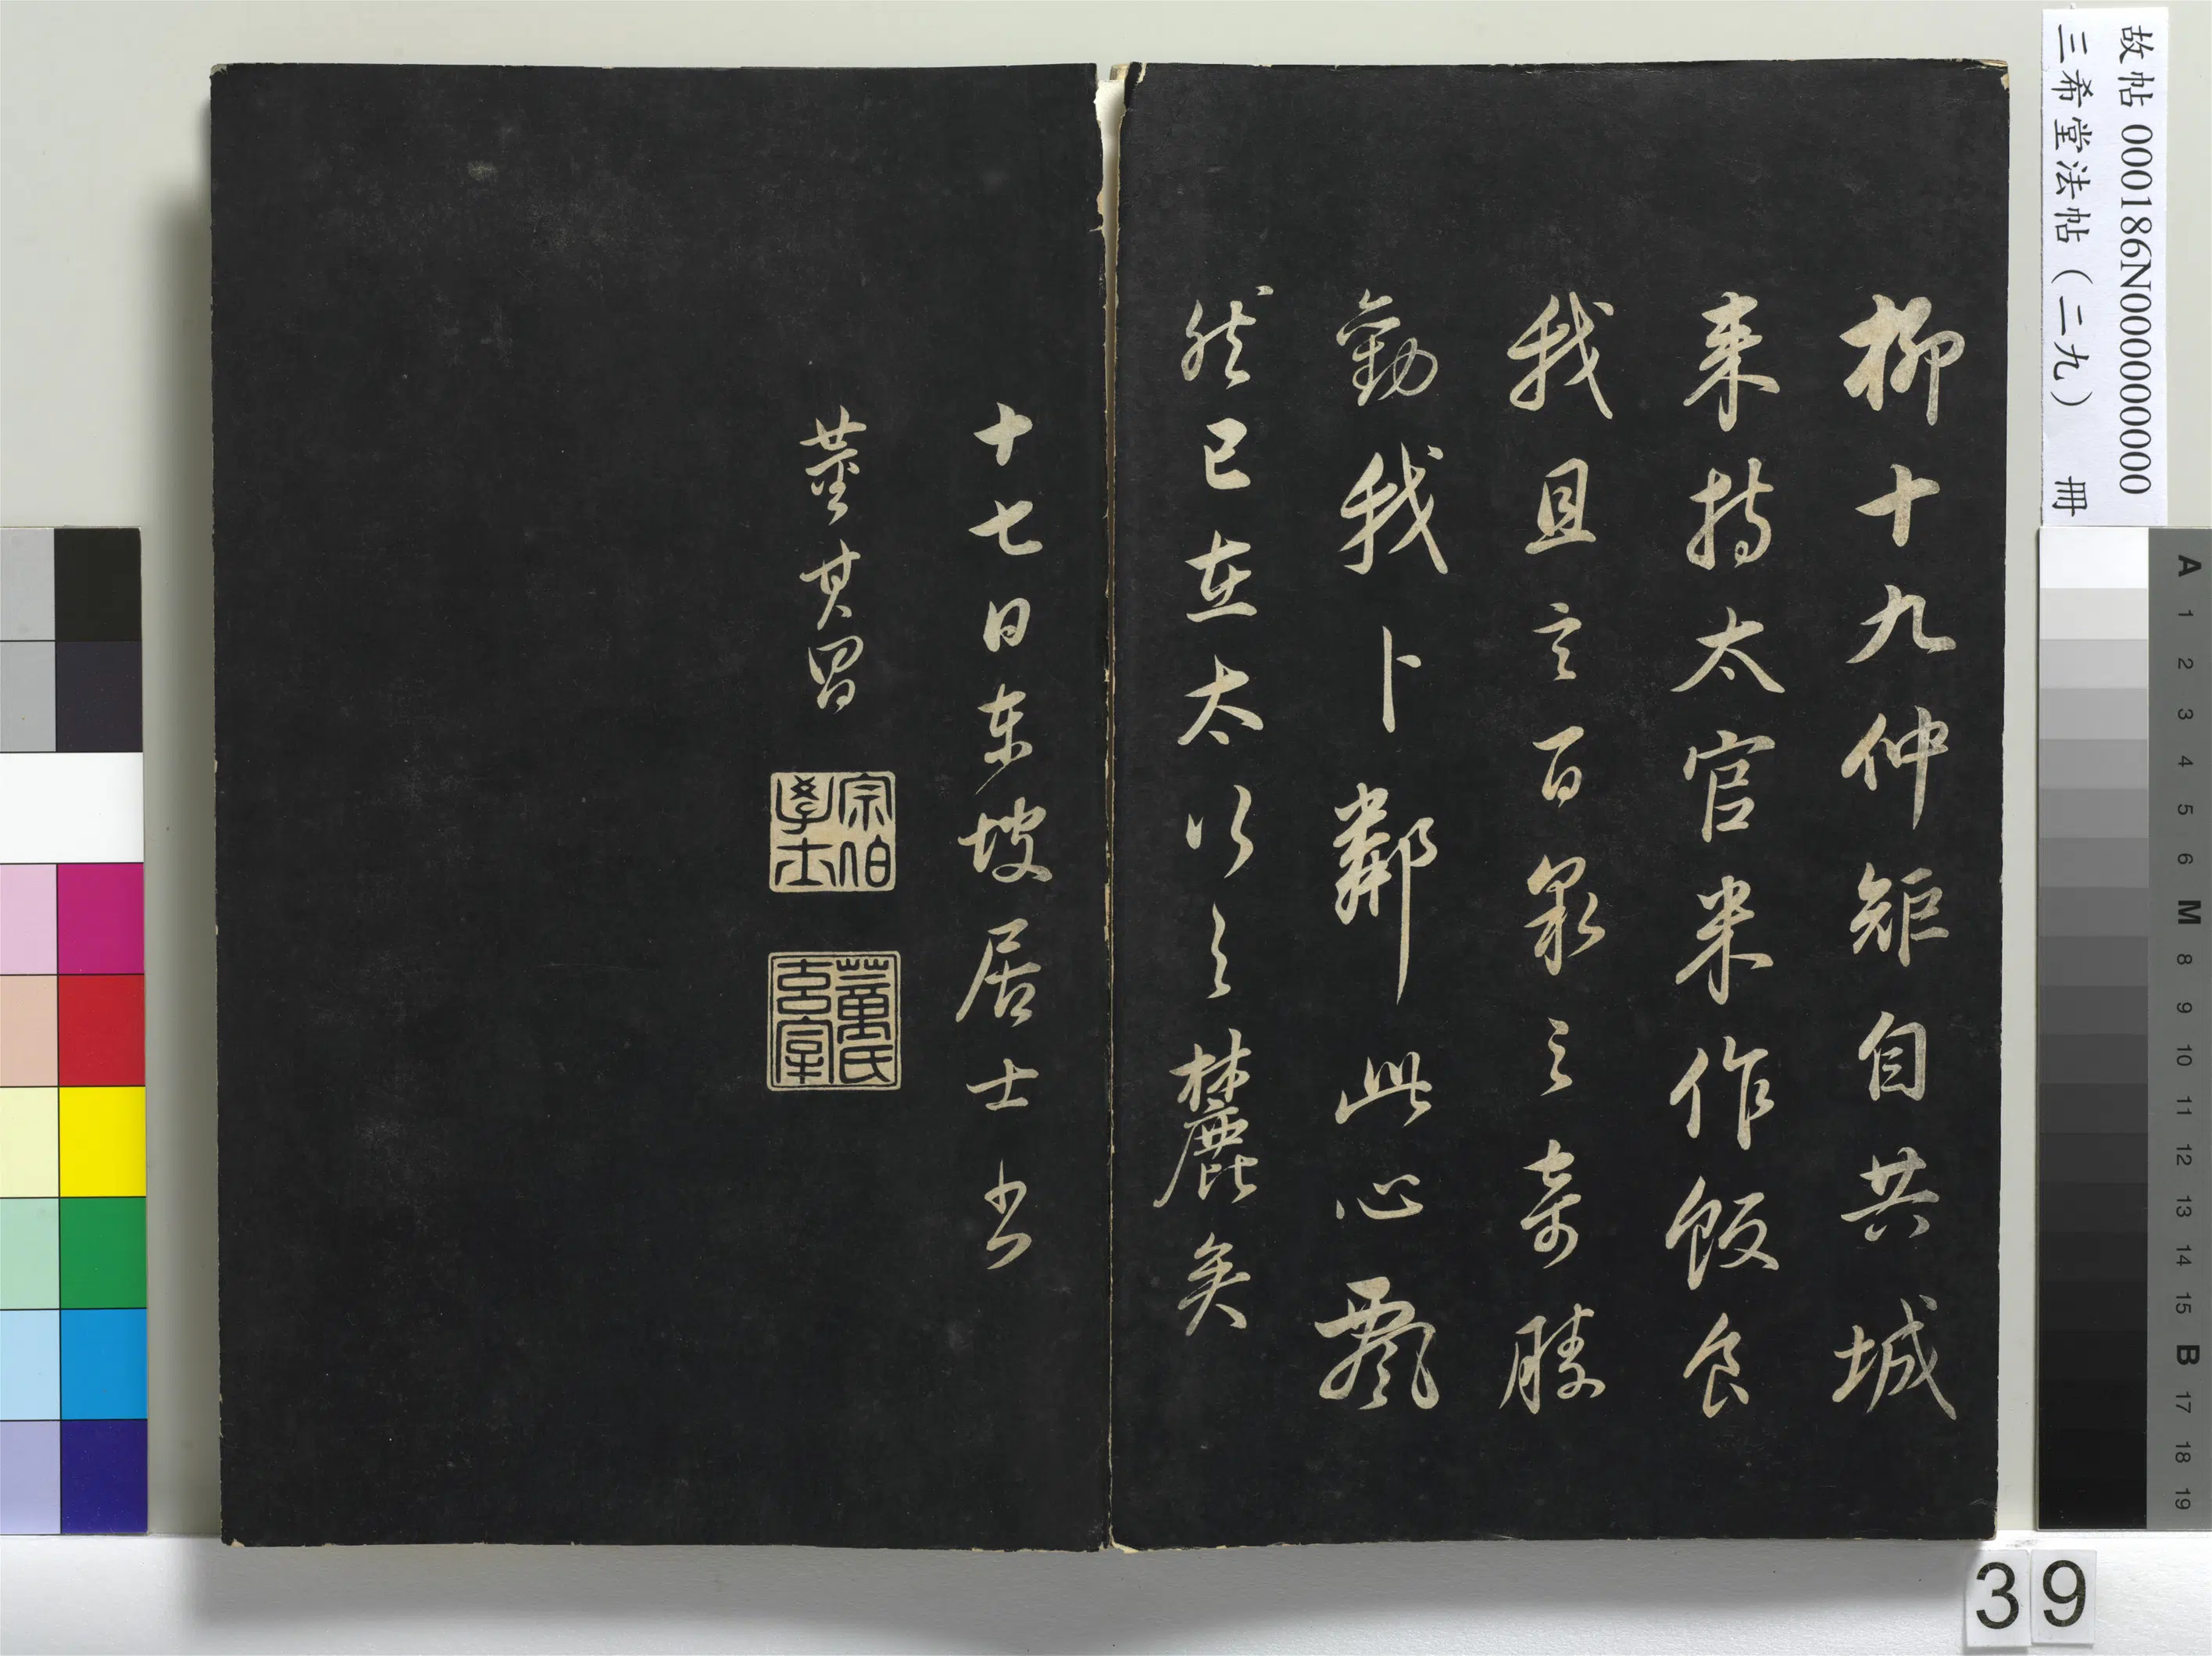 故帖 000186N000000000
三希堂法帖（二九） 冊
柳十九仲矩自共城
来持太官米作飯食
我且言百泉之奇勝
勸我卜鄰此心飄
然已在太行之麓矣
十七日東坡居士書
董其昌
宗伯學士
董氏玄宰
A 1 2 3 4 5 6 M 8 9 10 11 12 13 14 15 B 17 18 19
39